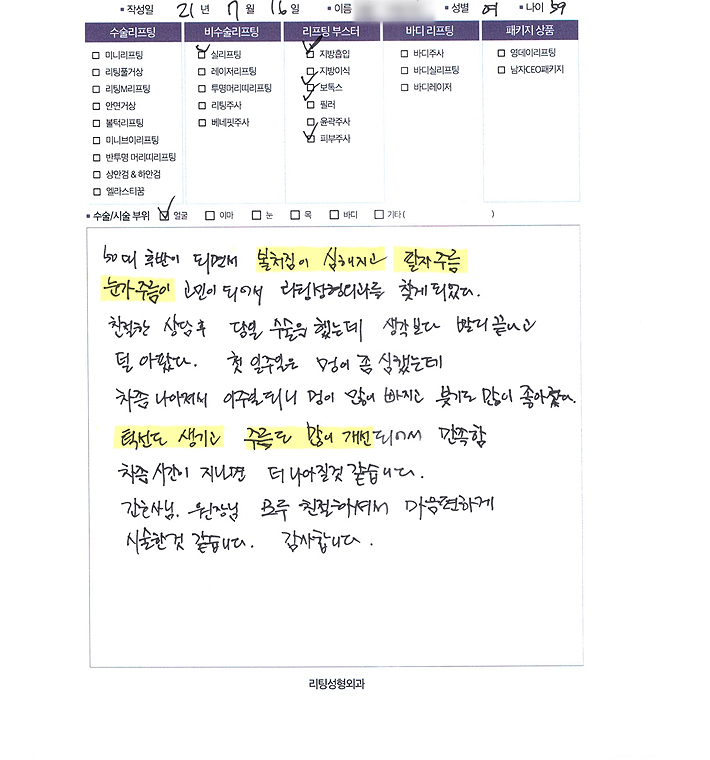 작성일 21 년 7 월 16 일 이름 성별 여 나이 59
수술리프팅 비수술리프팅 리프팅 부스터 바디 리프팅 패키지 상품
미니리프팅 실리프팅 지방흡입 바디주사 영데이리프팅
리팅풀거상 레이저리프팅 지방이식 바디실리프팅 남자CEO패키지
리팅M리프팅 투명머리띠리프팅 보톡스 바디레이저
안면거상 리팅주사 필러
볼턱리프팅 베네핏주사 윤곽주사
미니브이리프팅 피부주사
반투명 머리띠리프팅
상안검 & 하안검
엘라스티꿈
수술/시술 부위 얼굴 이마 눈 목 바디 기타 ( )
50대 후반이 되면서 볼처짐이 심해지고 팔자주름
눈가주름이 고민이 되어서 리팅성형외과를 찾게 되었다.
친절한 상담후 당일 수술을 했는데 생각보다 빨리 끝나고
덜 아팠다. 첫 일주일은 멍이 좀 심했는데
차츰 나아져서 이주일되니 멍이 많이 빠지고 붓기도 많이 좋아졌다.
턱선도 생기고 주름도 많이 개선되어서 만족함
차츰 시간이 지나면 더 나아질것 같습니다.
간호사님, 원장님 모두 친절하셔서 마음편하게
시술한것 같습니다. 감사합니다.
리팅성형외과